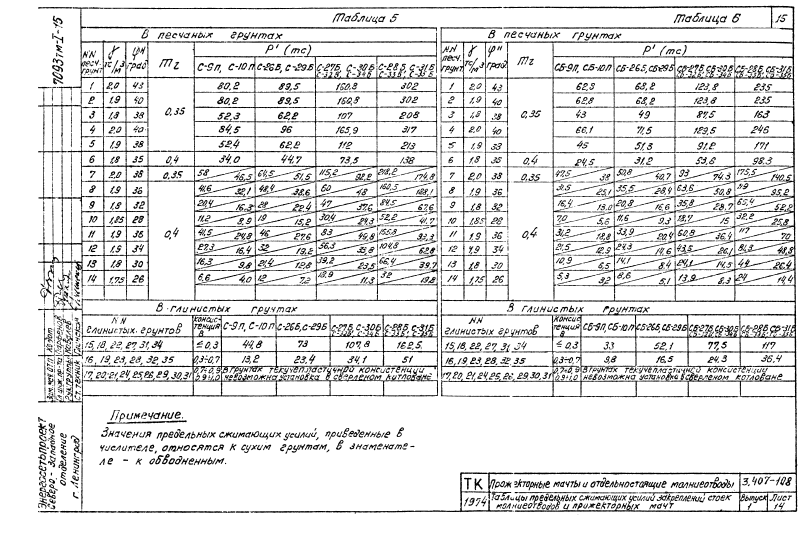 Таблица 5
Таблица 6
15
7093тм-I-15
В песчаных грунтах
NN песч. грунт γ тс/м³ φн град m₂ P' (тс)
С-9п, С-10п С-26Б, С-29Б С-27Б, С-30Б С-28Б, С-31Б
1 2,0 43 0,35 80,2 89,5 160,8 302
2 1,9 40 80,2 89,5 160,8 302
3 1,8 38 52,3 62,2 107 208
4 2,0 40 84,5 96 165,9 317
5 1,9 38 52,4 62,2 112 213
6 1,8 35 0,4 34,0 44,7 73,5 138
7 2,0 38 0,35 58 46,5 64,5 51,5 115,2 92,2 218,2 174,8
8 1,9 36 0,4 41,6 32,1 48,4 38,6 60 48 160,5 128,1
9 1,8 32 20,4 16,3 28 22,4 47 37,6 84,5 67,6
10 1,85 28 11,2 8,9 19 15,2 30,4 24,3 52,2 41,7
11 1,9 36 41,5 24,8 46 27,6 83 49,8 155,8 93,3
12 1,9 34 27,3 16,4 32 19,2 56,3 33,8 104,8 62,8
13 1,8 30 16,3 9,8 21,4 12,8 39,2 23,5 66,4 39,7
14 1,75 26 6,6 4,0 12 7,2 10,9 11,3 32 19,8
В глинистых грунтах
NN глинистых грунтов Консистенция В С-9п, С-10п С-26Б, С-29Б С-27Б, С-30Б С-28Б, С-31Б
15, 18, 22, 27, 31, 34 ≤0,3 44,8 73 107,8 162,5
16, 19, 23, 28, 32, 35 0,3÷0,7 13,2 23,4 34,1 51
17, 20, 21, 24, 25, 26, 29, 30, 31 0,7÷0,9 0,9÷1,0 В грунтах текучепластичной консистенции невозможна установка в сверленом котловане
В песчаных грунтах
NN песч. грунт γ тс/м³ φн град m₂ P' (тс)
СБ-9п, СБ-10п СБ-26Б, СБ-29Б СБ-27Б, СБ-30Б СБ-28Б, СБ-31Б
1 2,0 43 0,35 62,8 68,2 123,8 235
2 1,9 40 62,8 68,2 123,8 235
3 1,8 38 43 49 87,5 163
4 2,0 40 66,1 71,5 129,5 246
5 1,9 33 45 51,3 91,2 171
6 1,8 35 0,4 24,5 31,2 53,6 98,3
7 2,0 38 0,35 47,5 38 50,8 40,7 93 74,3 175,5 140,5
8 1,9 36 0,4 31,5 25,1 35,5 28,4 63,6 50,8 119 95,2
9 1,8 32 16,4 13,0 20,8 16,6 35,8 28,7 65,4 52,2
10 1,85 28 7,0 5,6 11,6 9,3 18,7 15 32,2 25,8
11 1,9 36 31,2 18,8 33,9 20,4 60,8 36,4 117 70
12 1,9 34 21,5 12,9 24,3 14,6 43,5 26,1 81,3 48,8
13 1,8 30 10,9 6,5 14,1 8,4 24,1 14,5 44 26,4
14 1,75 26 5,3 3,2 8,6 5,1 13,9 8,3 24 14,4
В глинистых грунтах
NN глинистых грунтов Консистенция В СБ-9п, СБ-10п СБ-26Б, СБ-29Б СБ-27Б, СБ-30Б СБ-28Б, СБ-31Б
15, 18, 22, 27, 31 34 ≤0.3 33 52,1 77,5 117
16, 19 23, 28, 32 35 0,3÷0,7 9,8 16,5 24,3 36,4
17, 20, 21, 24, 25, 26, 29, 30, 31 0,7÷0,9 0,9÷1,0 В грунтах текучепластичной консистенции невозможна установка в сверленом котловане
Примечание.
Значения предельных сжимающих усилий, приведенные в
числителе, относятся к сухим грунтам, в знаменате-
ле - к обводненным.
Энергосетьпроект
Северо-Западное
отделение
г. Ленинград
ТК Прожекторные мачты и отдельностоящие молниеотводы 3.407-108
1974 Таблицы предельных сжимающих усилий закреплений стоек
молниеотводов и прижекторных мачт
Выпуск 1 Лист 14